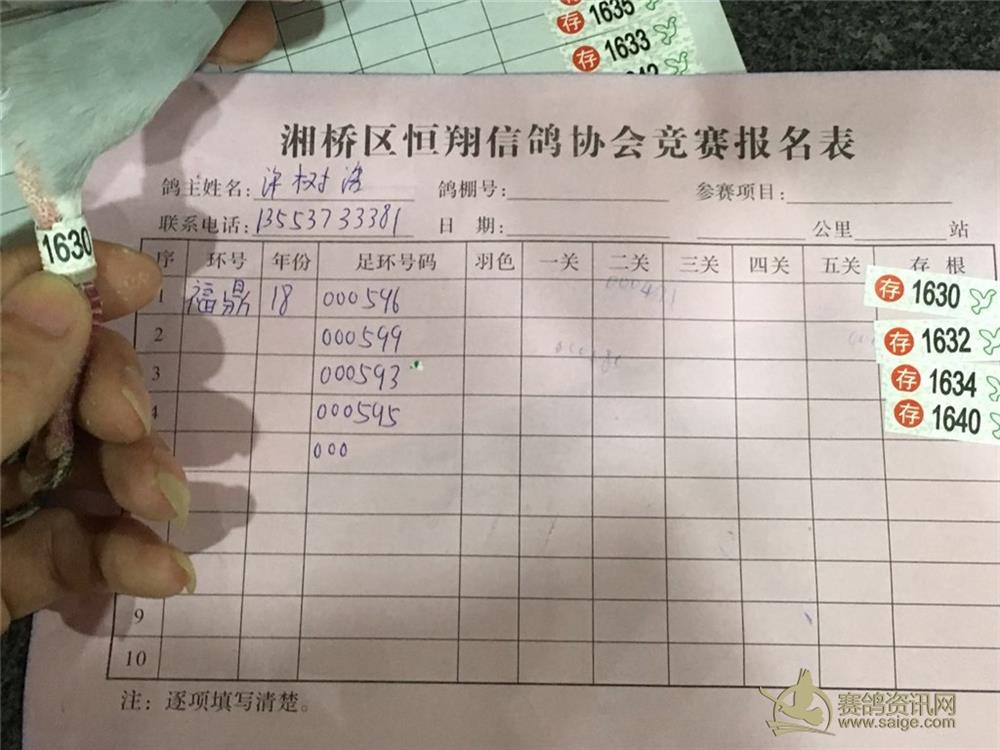 存 1635
存 1633
湘桥区恒翔信鸽协会竞赛报名表
鸽主姓名: 树 鸽棚号: 参赛项目:
联系电话: 13553733381 日 期: 公里 站
1630
序 环号 年份 足环号码 羽色 一关 二关 三关 四关 五关 存根
1 福鼎 18 000596 存 1630
2 000599 存 1632
3 000593 存 1634
4 000595 存 1640
000
9
10
注：逐项填写清楚。
赛鸽资讯网
www.saige.com